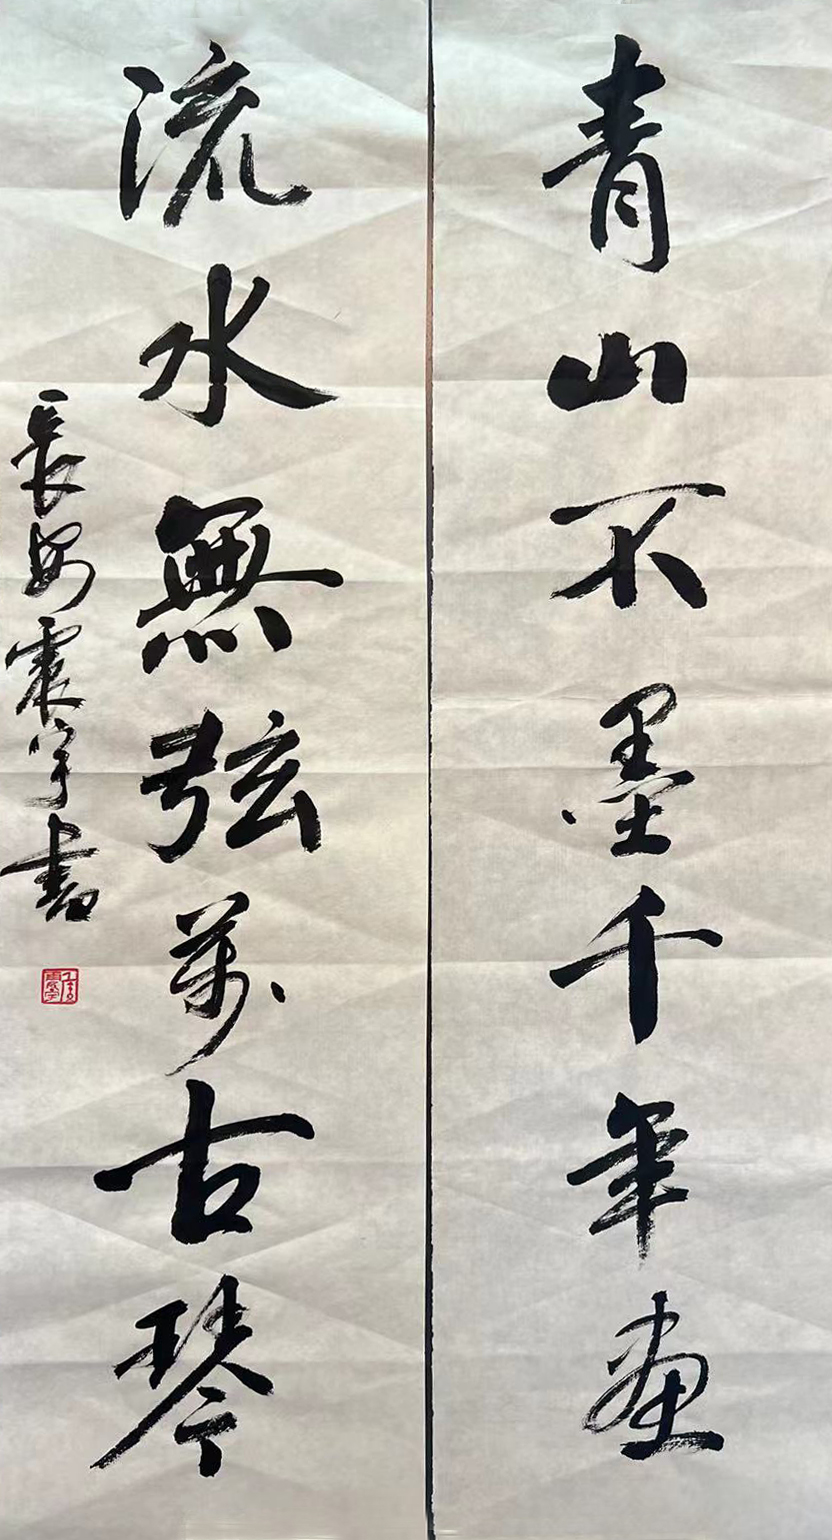 青山不墨千年畫
流水無弦萬古琴
長安震宇書